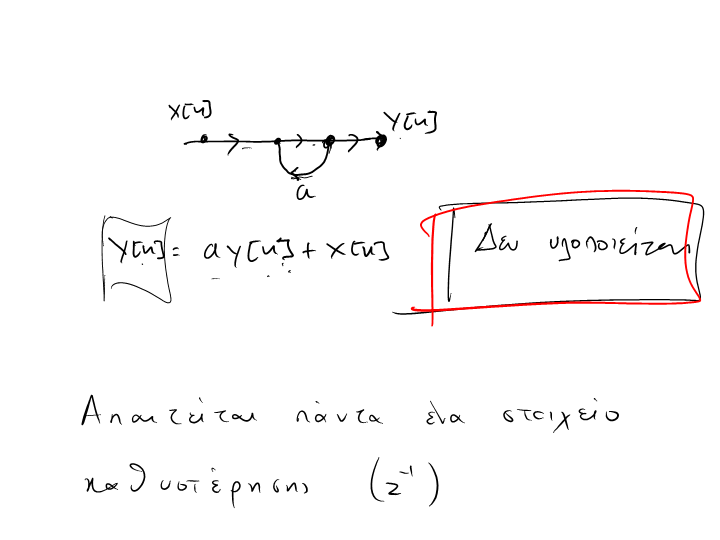 x[n]
y[n]
a
y[n] = a y[n] + x[n]
Δεν υλοποιείται
Απαιτείται πάντα ένα στοιχείο
καθυστέρησης (z⁻¹)